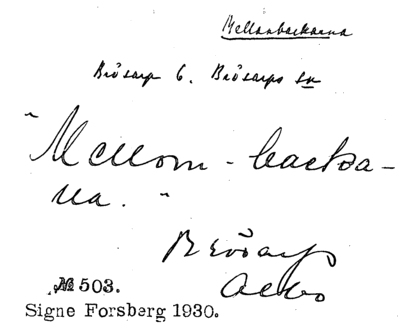 Mellanbackarna
Brösarp 6. Brösarps sn
"Mellom-backa-
na."
Brösarp
Albo
№ 503.
Signe Forsberg 1930.